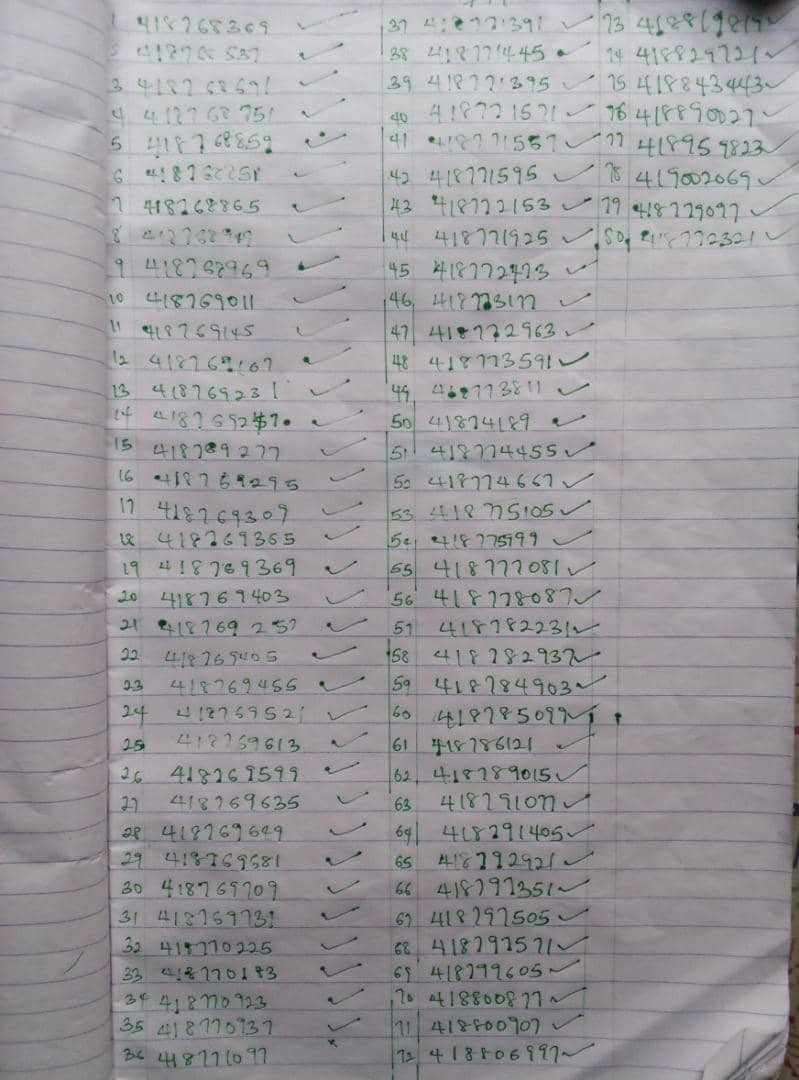 1 418768369 ✓
2 418768537 ✓
3 418768691 ✓
4 418768751 ✓
5 418768859 ✓
6 418768851 ✓
7 418768865 ✓
8 ✓
9 418768969 ✓
10 418769011 ✓
11 418769145 ✓
12 418769167 ✓
13 418769231 ✓
14 ✓
15 418769277 ✓
16 418769295 ✓
17 418769309 ✓
18 418769365 ✓
19 418769369 ✓
20 418769403 ✓
21 418769257 ✓
22 418769405 ✓
23 418769455 ✓
24 418769521 ✓
25 418769613 ✓
26 418769599 ✓
27 418769635 ✓
28 418769649 ✓
29 418769681 ✓
30 418769709 ✓
31 418769731 ✓
32 418770225 ✓
33 418770183 ✓
34 418770923 ✓
35 418770937 ✓
36 418771097
37 418771391 ✓
38 418771445 ✓
39 418771395 ✓
40 418771571 ✓
41 418771557 ✓
42 418771595 ✓
43 418772153 ✓
44 418771925 ✓
45 418772473 ✓
46 418773177 ✓
47 418772963 ✓
48 418773591 ✓
49 418773811 ✓
50 41874189 ✓
51 418774455 ✓
52 418774667 ✓
53 418775105 ✓
54 418775999 ✓
55 418777081 ✓
56 418778087 ✓
57 418782231 ✓
58 418782937 ✓
59 418784903 ✓
60 418785097 ✓
61 418786121 ✓
62 418789015 ✓
63 418791077 ✓
64 418791405 ✓
65 418792921 ✓
66 418797351 ✓
67 418797505 ✓
68 418797571 ✓
69 418799605 ✓
70 418800877 ✓
71 418800907 ✓
72 418806997 ✓
73 418819819 ✓
74 418829721 ✓
75 418843443 ✓
76 418890027 ✓
77 418959823 ✓
78 419002069 ✓
79 418779097 ✓
80 418772321 ✓